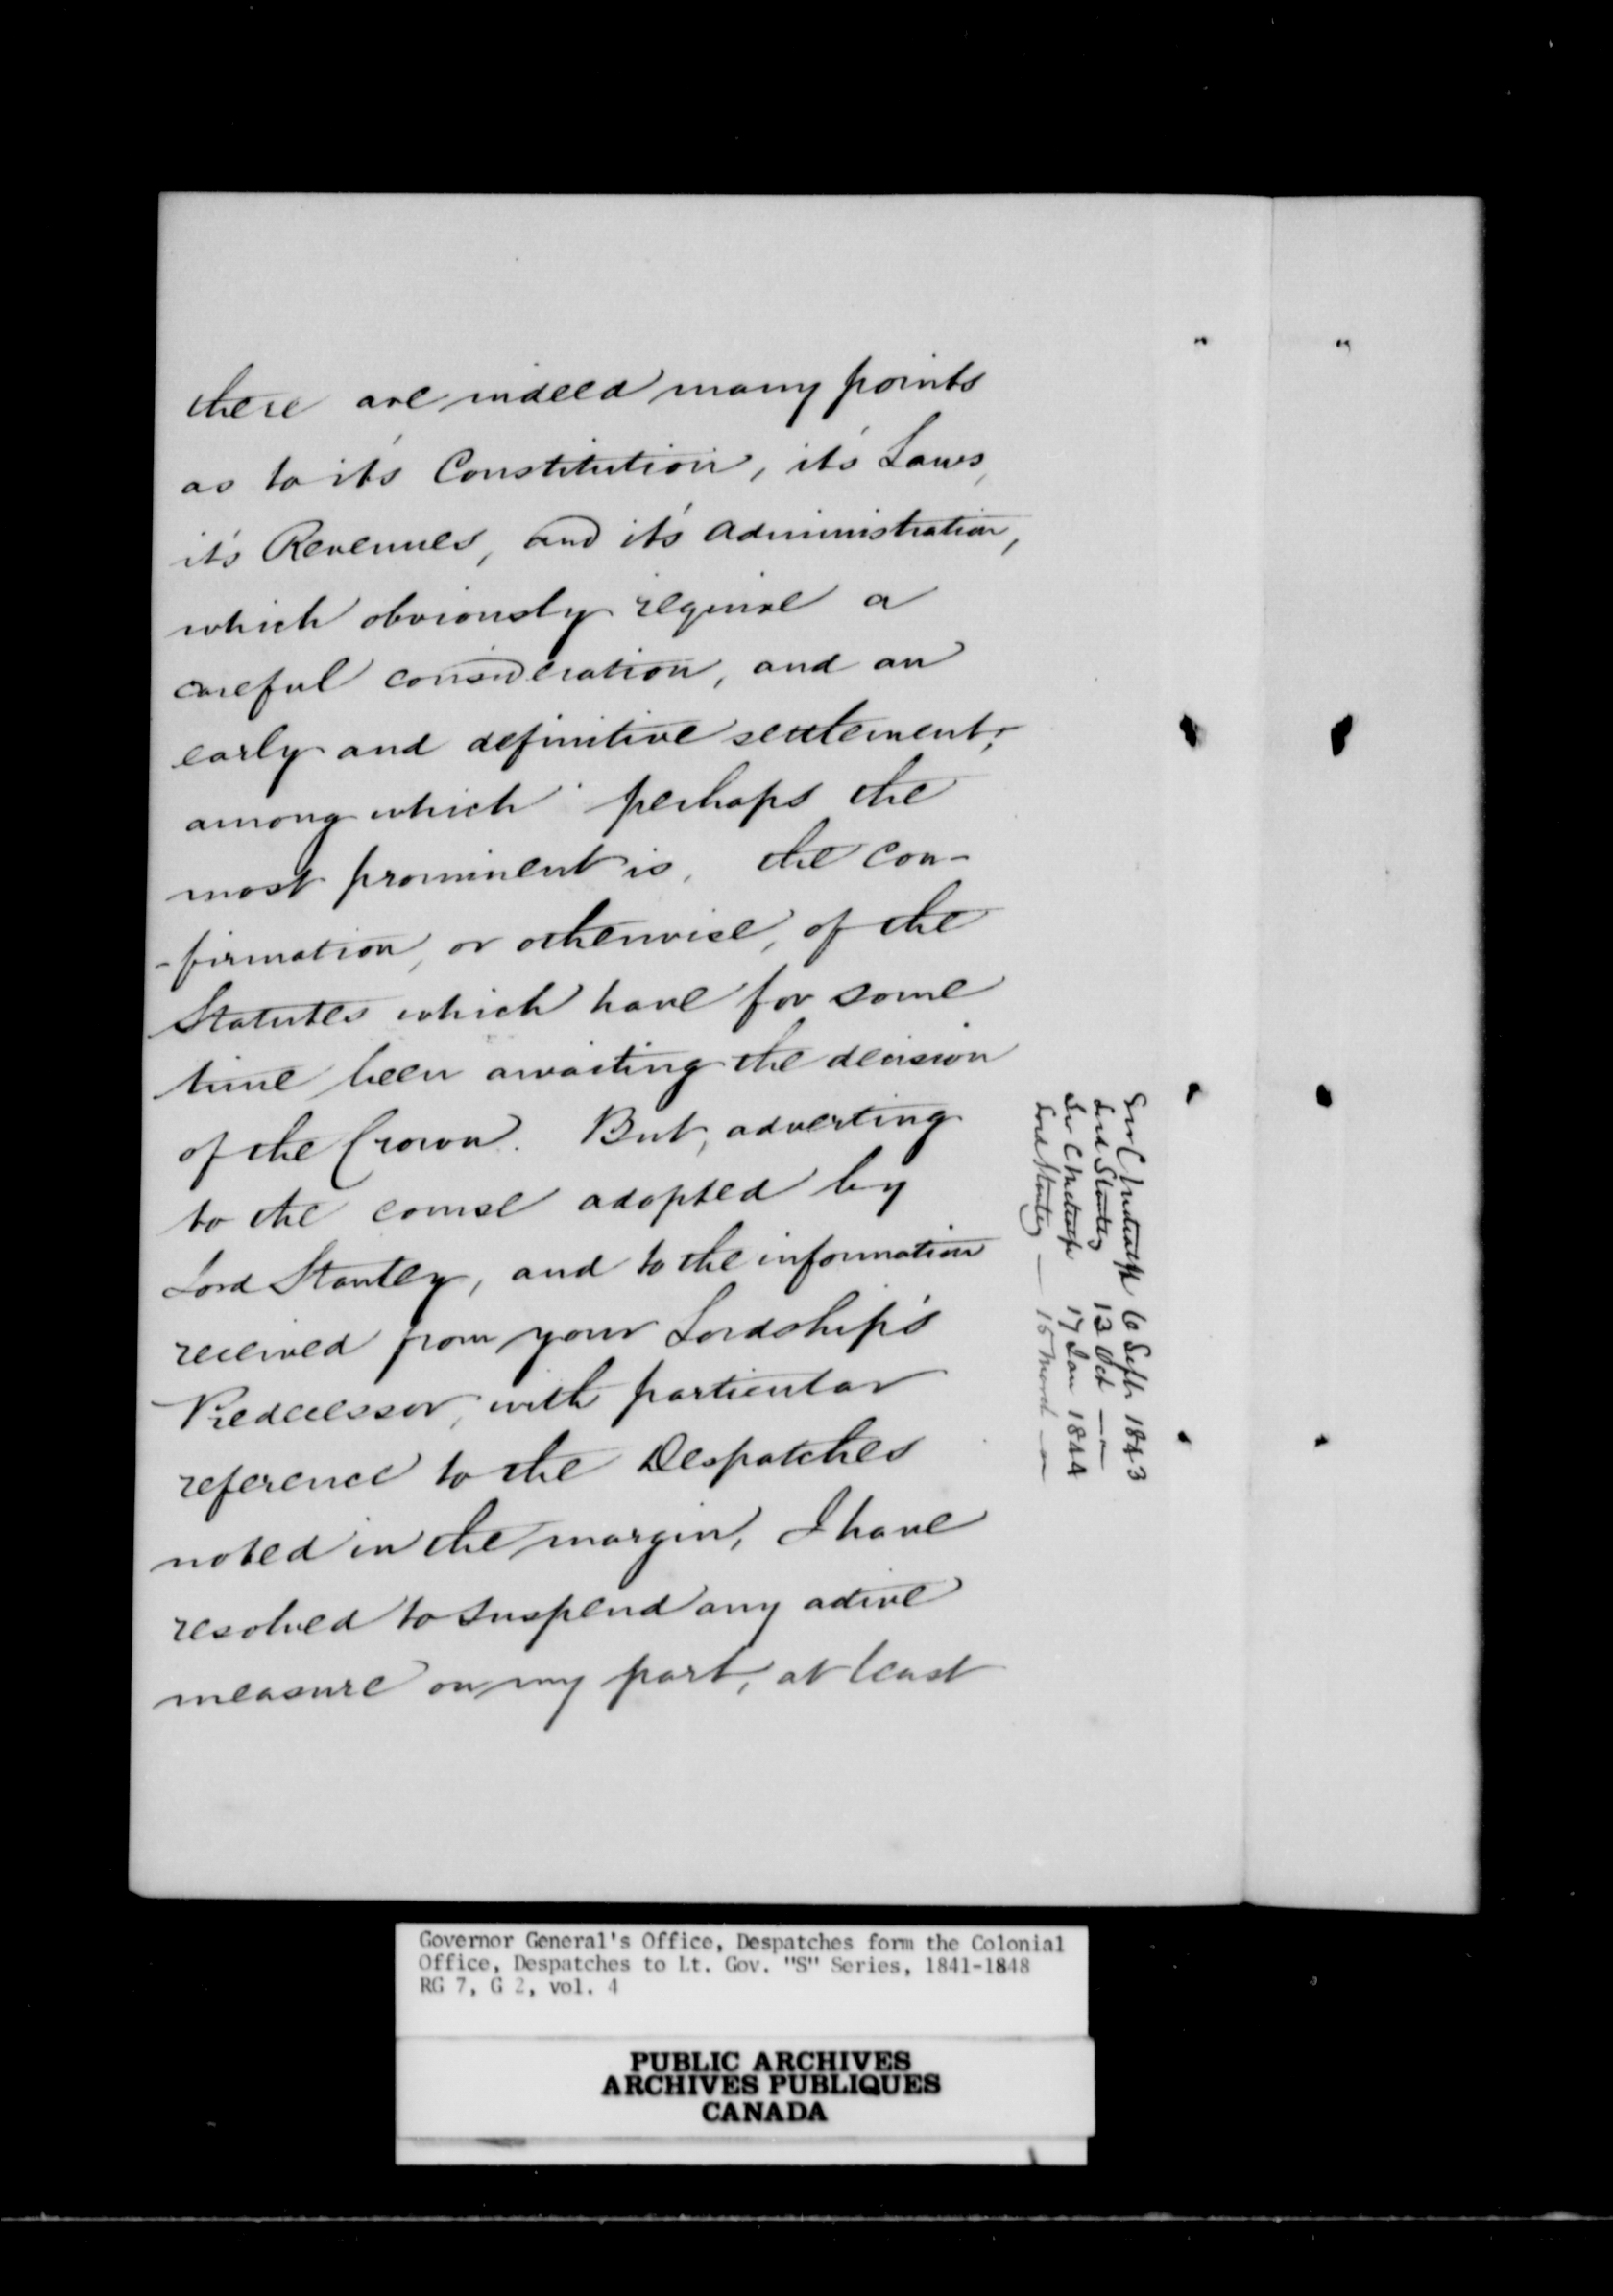 there are indeed many points
as to it's Constitution, it's Laws,
it's Revenues, and it's administration,
which obviously require a
careful consideration, and an
early and definitive settlement;
among which perhaps the
most prominent is, the con-
-firmation, or otherwise, of the
Statutes which have for some
time been awaiting the decision
of the Crown. But, adverting
to the course adopted by
Lord Stanley, and to the information
received from your Lordship's
Predecessor, with particular
reference to the Despatches
noted in the margin, I have
resolved to suspend any active
measure on my part, at least
Sir C Metcalfe 6 Sept. 1843
Lord Stanley 13 Oct —"—
Sir C Metcalfe 17 Jan 1844
Lord Stanley — 15 March — "
Governor General's Office, Despatches form the Colonial
Office, Despatches to Lt. Gov. "S" Series, 1841-1848
RG 7, G 2, vol. 4
PUBLIC ARCHIVES
ARCHIVES PUBLIQUES
CANADA